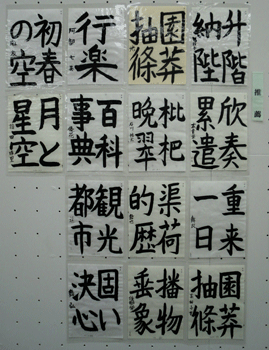 推薦
升階
納陛
園莽
抽條
行楽
初春
の空
欣奏
累遣
枇杷
晩翠
百科
事典
月と
星空
重来
一日
渠荷
的歴
観光
都市
園莽
抽條
播物
垂象
固い
決心